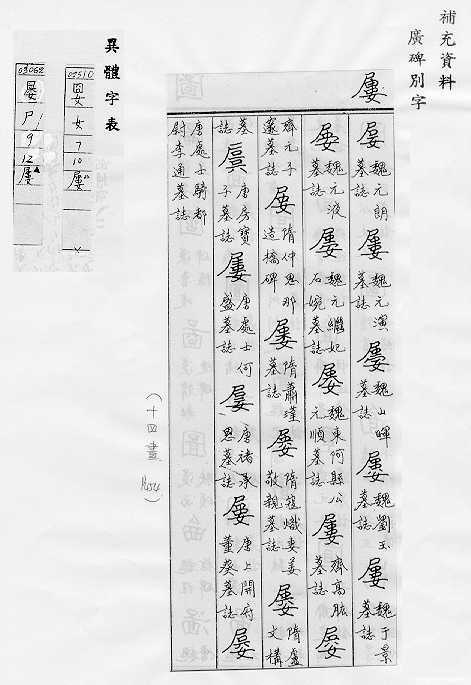 補充資料
廣碑別字
屢
屢魏元朗墓誌 屢魏元演墓誌 屢魏山暉墓誌 屢魏劉玉墓誌 屢魏于景墓誌
屢魏元液墓誌 屢魏元繼妃石婉墓誌 屢魏東阿縣公元順墓誌 屢齊高肱墓誌 屢
齊元子邃墓誌 屢隋仲思那造橋碑 屢隋蕭瑾墓誌 屢隋寇熾妻姜敬親墓誌 屢隋盧文構
墓誌 唐房寶子墓誌 屢唐處士何盛墓誌 屢唐褚承恩墓誌 屢唐上開府董葵墓誌 屢
唐處士騎都尉李通墓誌
(十四畫
)
異體字表
02510
女
7
10
屢
03062
尸
9
12
屢